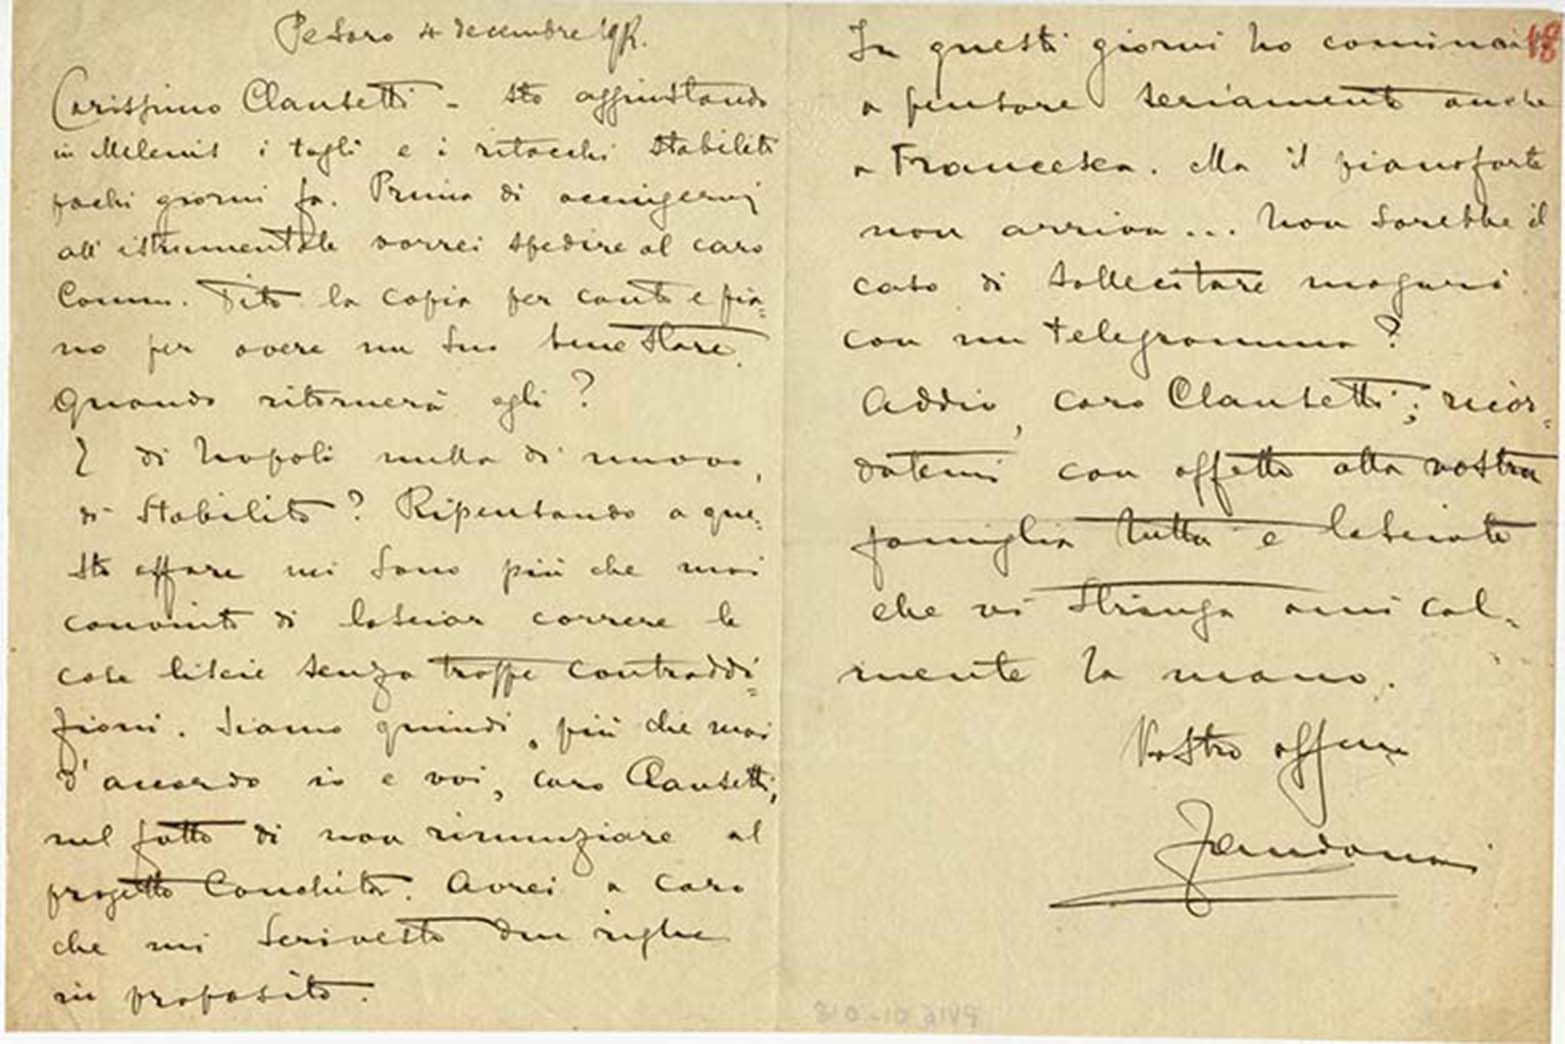 Pesaro 4 decembre 1912.
Carissimo Clausetti - Sto aggiustando
in Melenis i tagli e i ritocchi stabiliti
pochi giorni fa. Prima di accingermi
all'istrumentale vorrei spedire al caro
Comm. Tito la copia per canto e pia=
no per avere un suo bene stare.
Quando ritornerà egli?
E di Napoli nulla di nuovo,
di stabilito? Ripensando a que=
sto affare mi sono più che mai
convinto di lasciar correre le
cose liscie senza troppe contraddi=
zioni. Siamo quindi, più che mai
d'accordo io e voi, caro Clausetti,
nel fatto di non rinunziare al
progetto Conchita. Avrei a caro
che mi scriveste due righe
in proposito.
18
In questi giorni ho cominciato
a pensare seriamente anche
a Francesca. Ma il pianoforte
non arriva... Non sarebbe il
caso di sollecitare magari
con un telegramma?
Addio, caro Clausetti; ricor=
datemi con affetto alla vostra
famiglia tutta e lasciate
che vi stringa amical=
mente la mano.
Vostro affmo
Zandonai